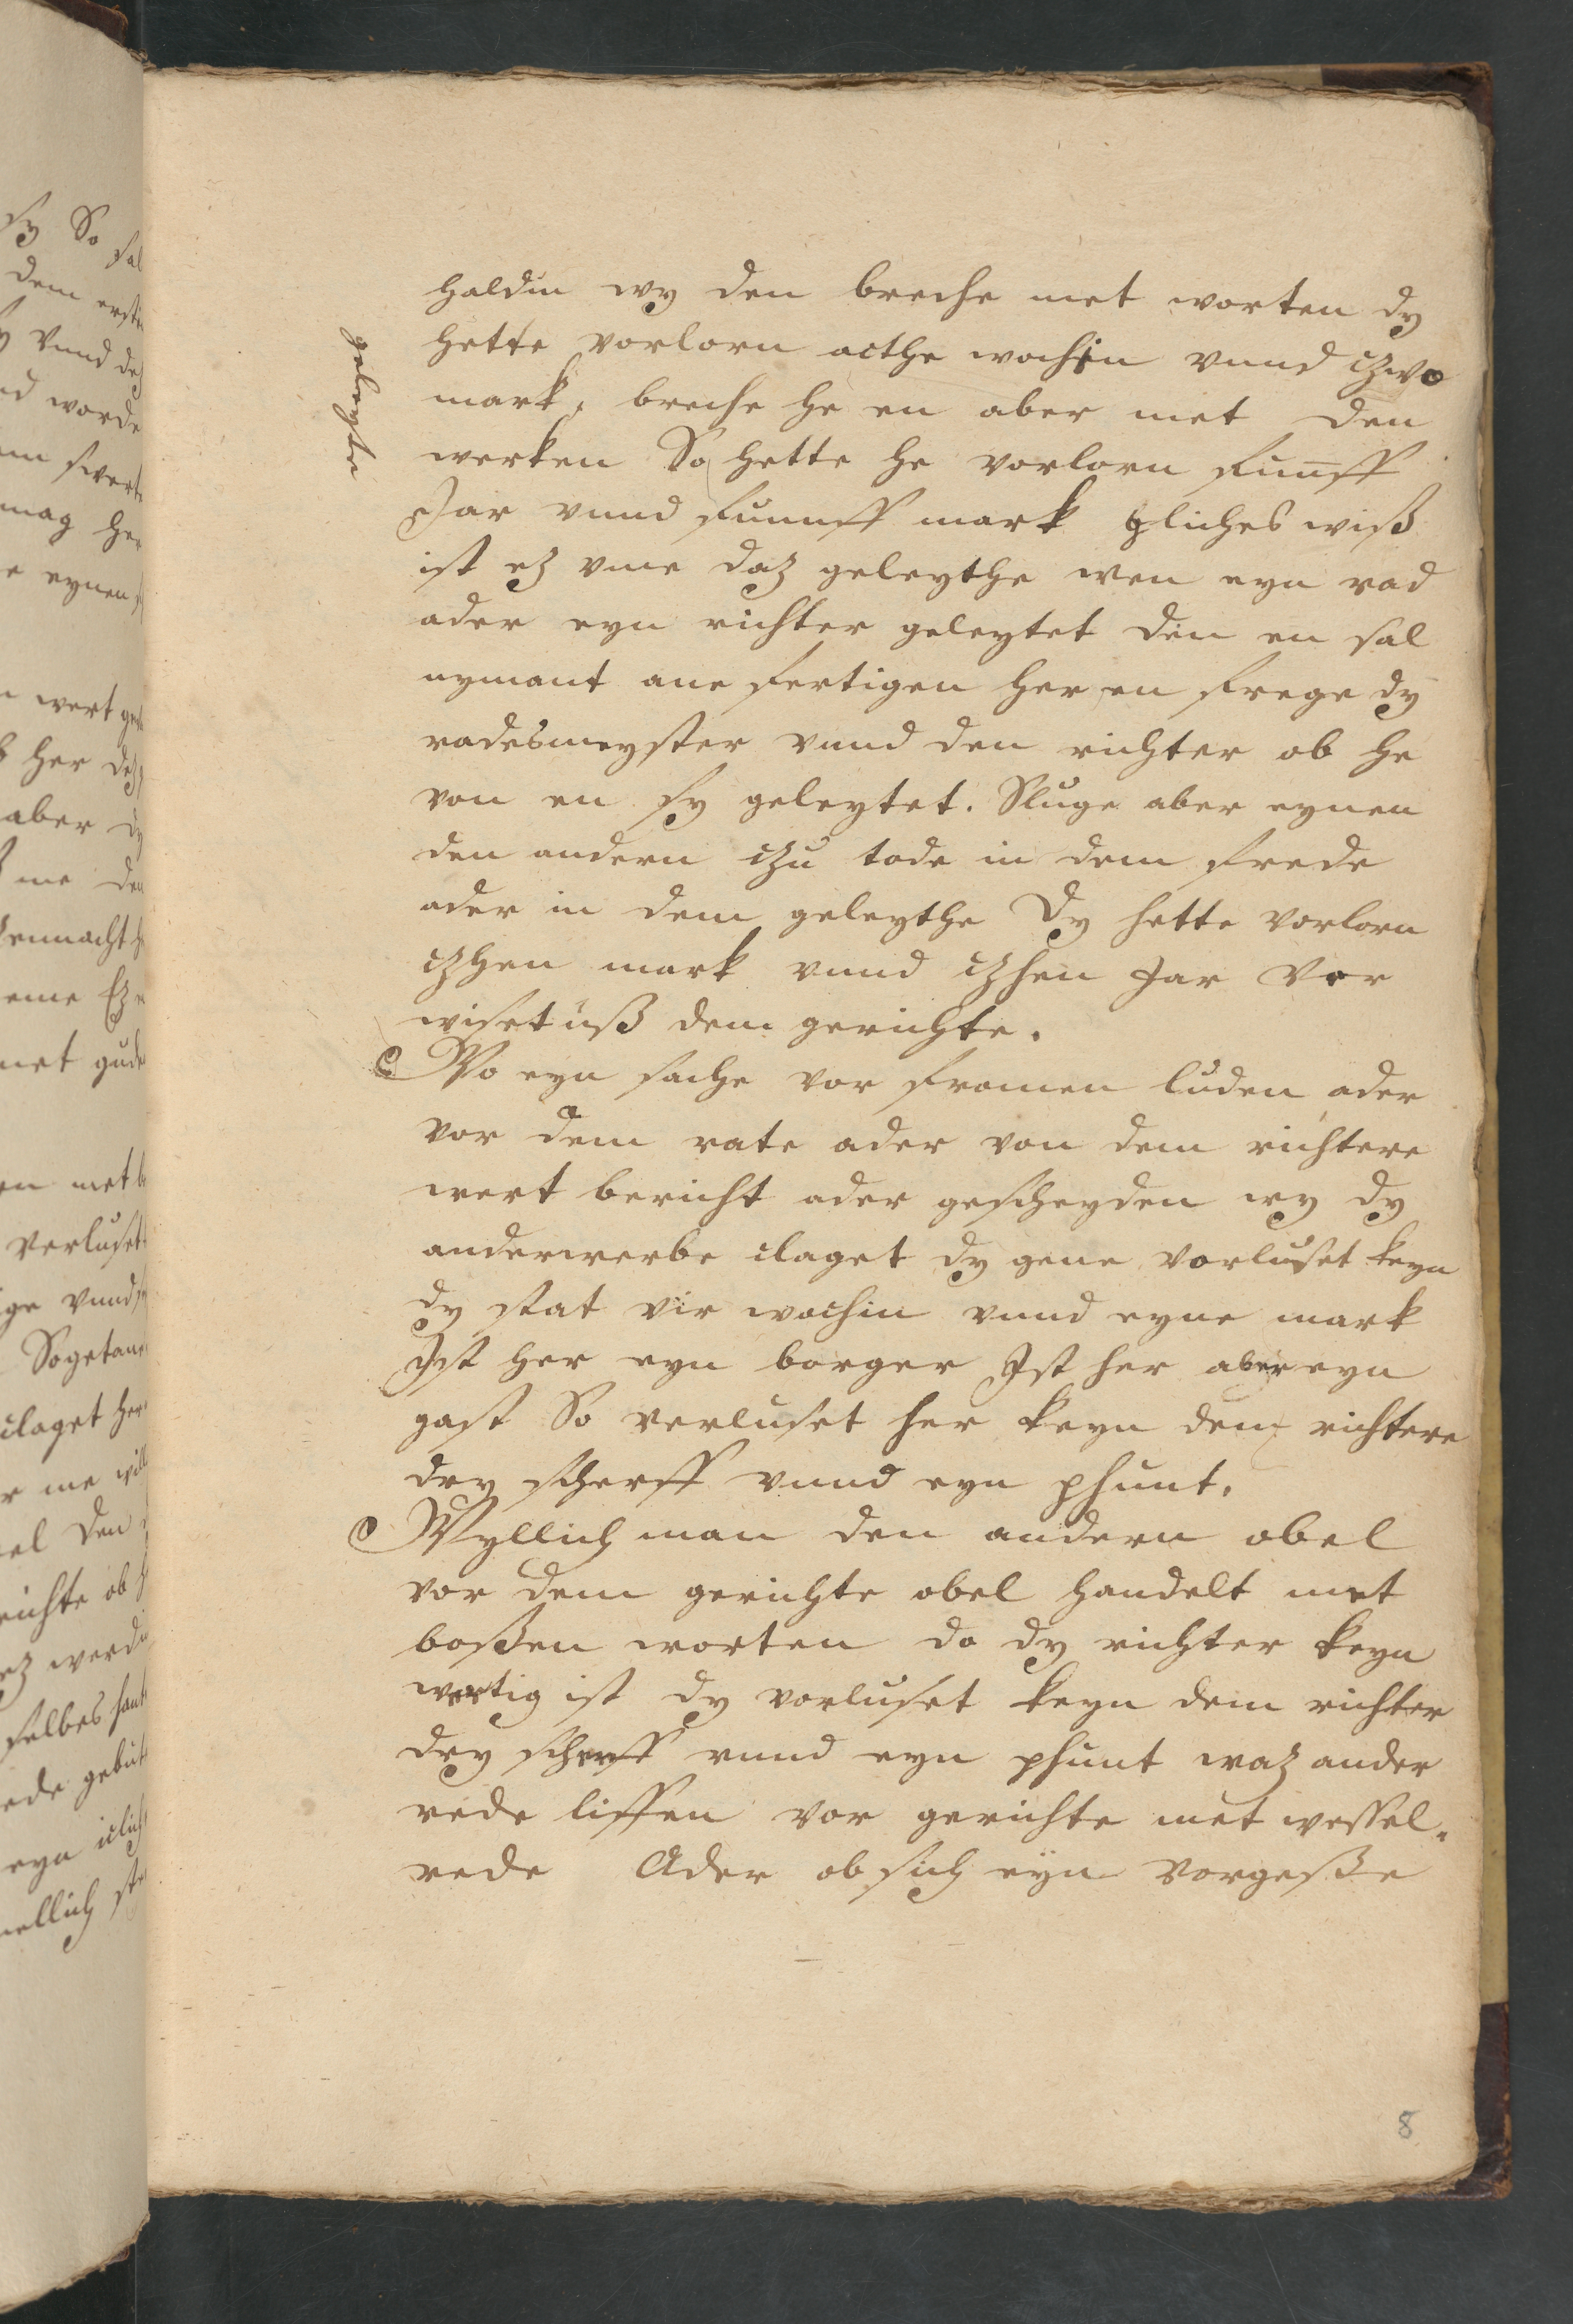 haldin wy den breche met worten dy
hette vorlorn acthe wochin vnnd czwo
geleyte
mark, breche he en aber met den
werken So hette he vorlorn funff
Jar vnnd funnff mark gliches wiß
ist ez vme daz geleythe wen eyn rad
ader eyn richter geleytet den en sal
nymant ane fertigen her en frege dy
radesmeyster vnnd den richter ob he
von en sy geleytet. Sluge aber eynen
den andern czu tode in dem frede
ader in dem geleythe Dy hette vorlorn
czhen mark vnnd czhen Jar vor
wiset uß dem gerichte.
Wo eyn sache vor fromen luden ader
vor dem rate ader von dem richtere
wert bericht ader gescheyden wy dy
anderwerbe claget dy gene vorluset keyn
dy stat vir wochin vnnd eyne mark
Ist her eyn borger Ist her aber eyn
gast So verluset her keyn dem richtere
dry scherff vnnd eyn phunt.
Wyllich man den andern obel
vor dem gerichte obel handelt met
boßen worten do dy richter keyn
wertig ist dy vorluset keyn dem richter
dry scherff vnnd eyn phunt waz ander
rede liffen vor gerichte met wessel-
rede Ader ob sich eyn vorgeße
8